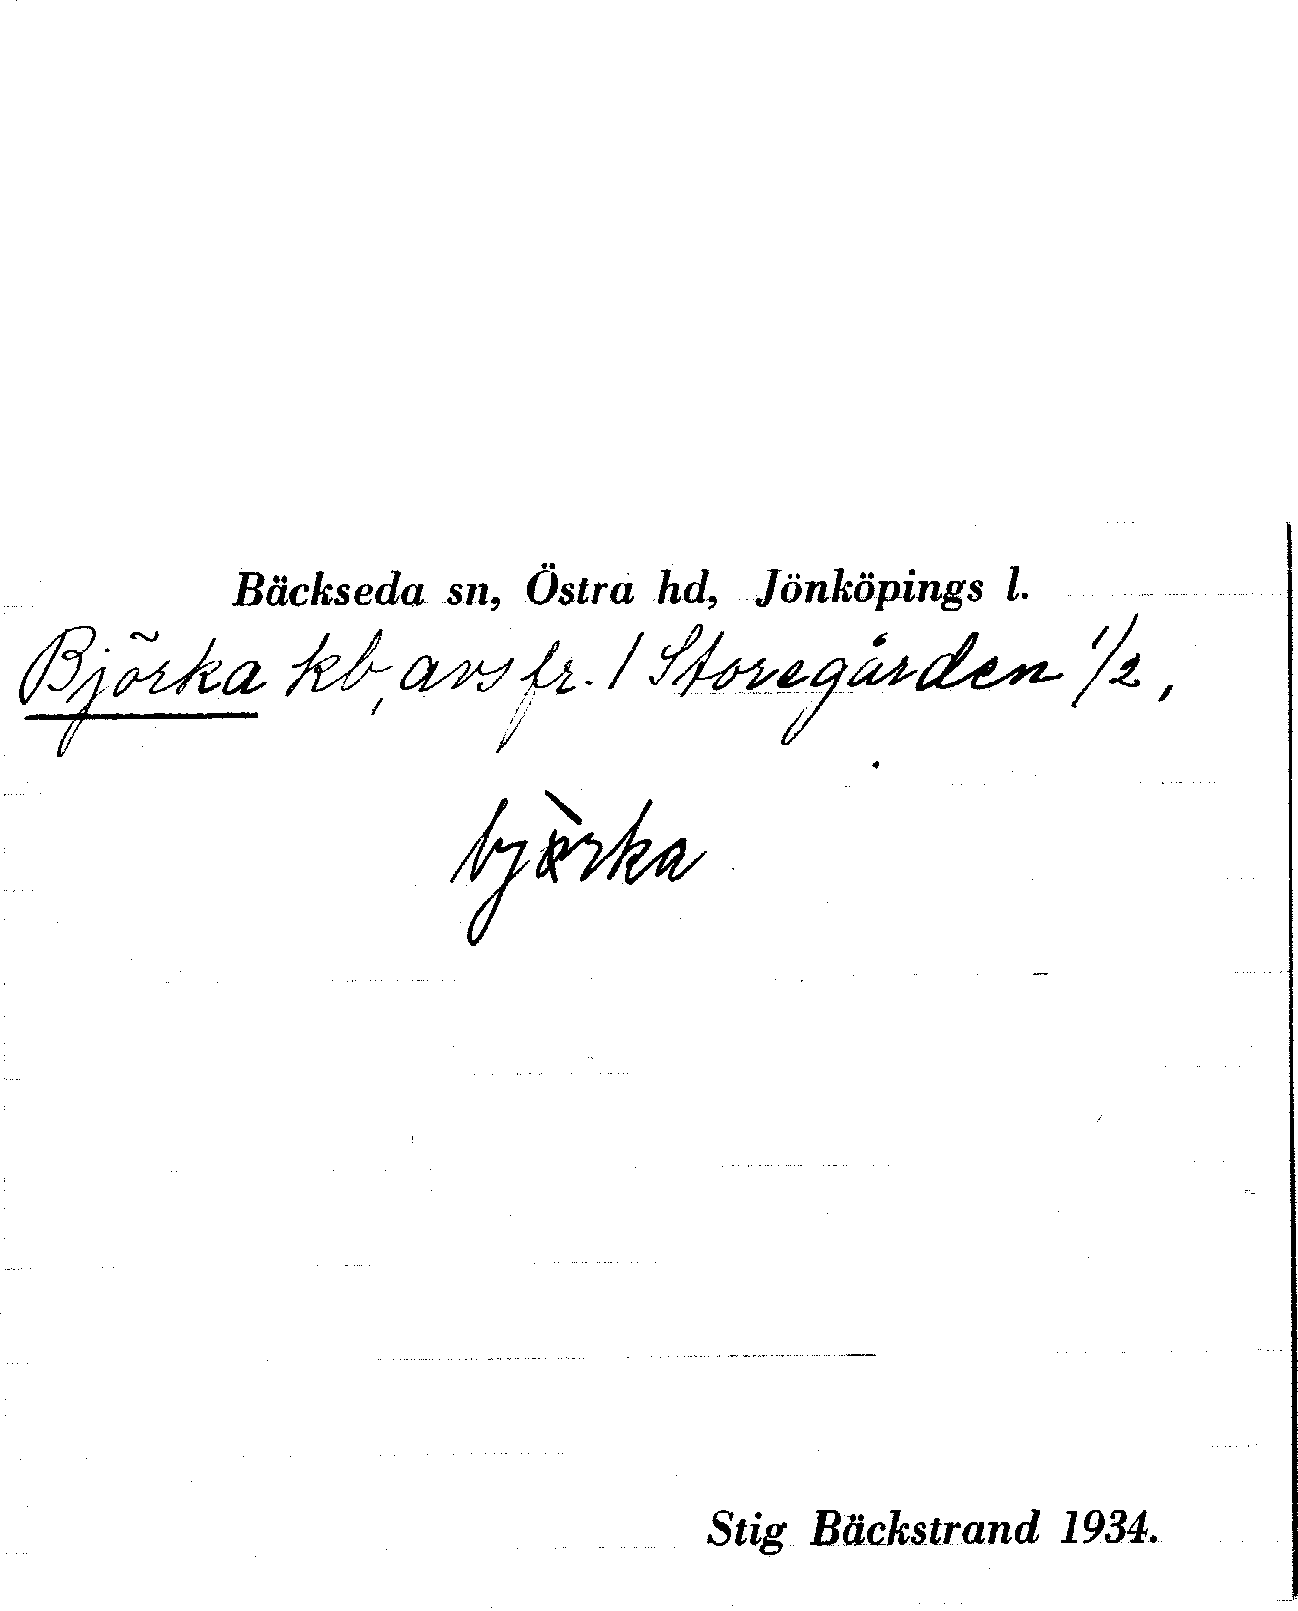 Bäckseda sn, Östra hd, Jönköpings l.
Björka kb, avs fr. 1 Storegården 1/2,
bjɵ̀rka
Stig Bäckstrand 1934.